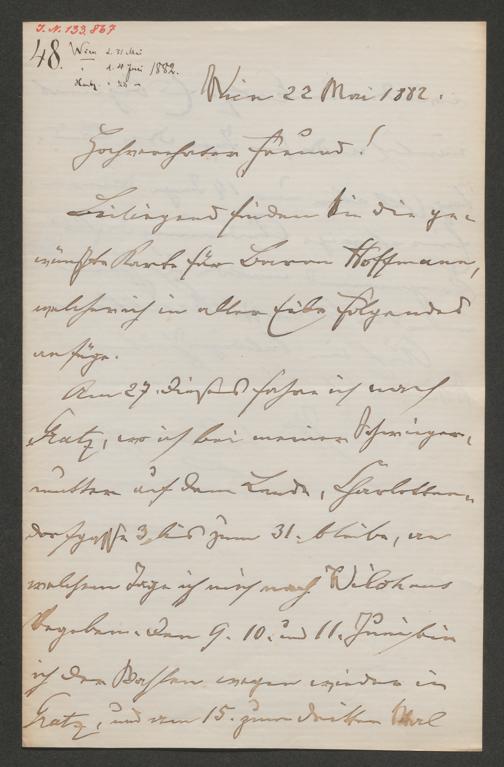 I.N. 133.867
48. Wien d. 31 Mai
" d. 4 Juni 1882.
Wien 22 Mai 1882.
Hochverehrter Freund!
Beiliegend finden Sie die ge-
wünschte Karte für Baron Hoffmann,
welcher ich in aller Eile Folgendes
anfüge.
Am 27. dieses fahre ich nach
Gratz, wo ich bei meiner Schwieger-
mutter auf dem Lande, Charlotten-
dorfgasse 3, bis zum 31. bleibe, an
welchem Tage ich mich nach Wildhaus
begebe. Den 9. 10. und 11. Juni bin
ich der Wahlen wegen wieder in
Gratz, und am 15. zum dritten Mal